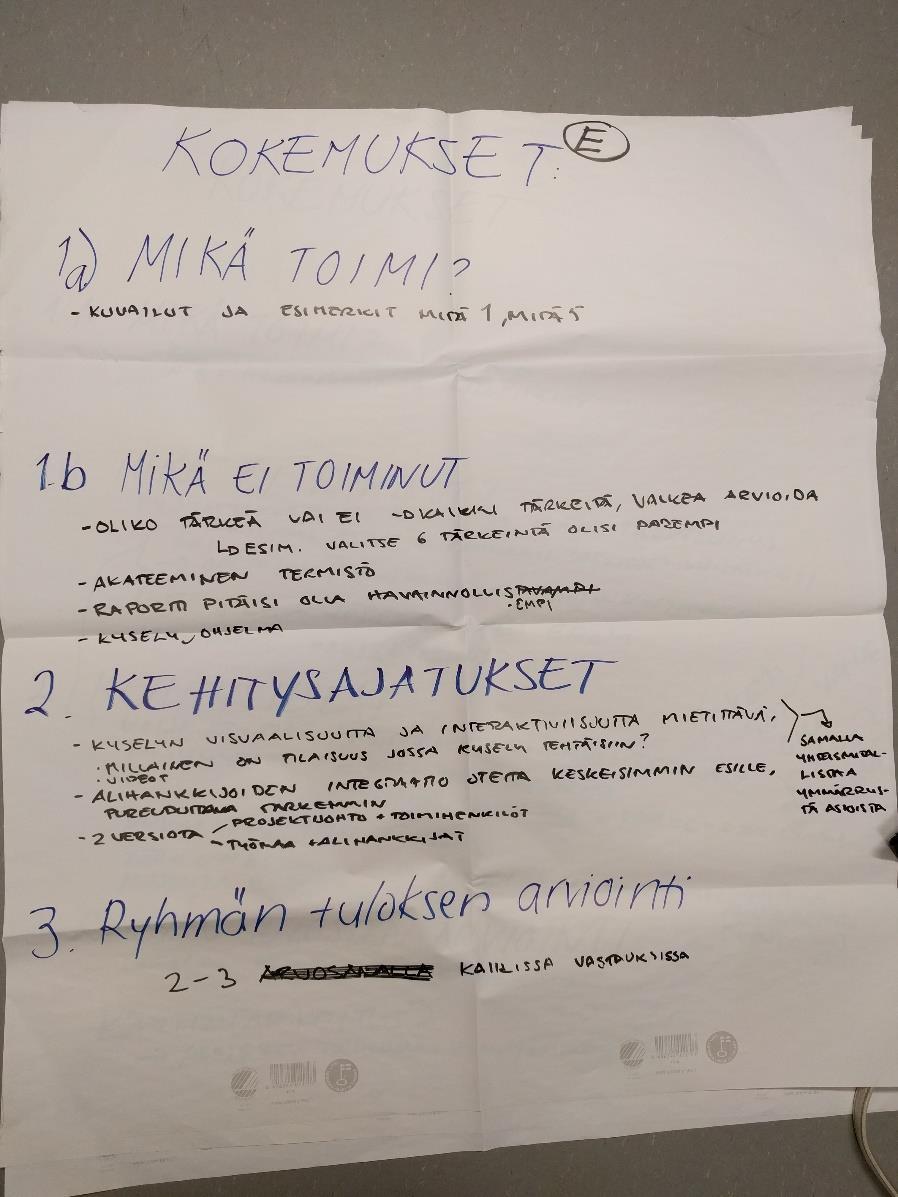 KOKEMUKSET: E
1a) MIKÄ TOIMI?
- KUVAILUT JA ESIMERKIT MITÄ 1, MITÄ 5
1.b MIKÄ EI TOIMINUT
- OLIKO TÄRKEÄ VAI EI → KAIKKI TÄRKEITÄ, VAIKEA ARVIOIDA
↳ ESIM. VALITSE 6 TÄRKEINTÄ OLISI PAREMPI
- AKATEEMINEN TERMISTÖ
- RAPORTTI PITÄISI OLLA HAVAINNOLLIS
- EMPI
- KYSELY, OHJELMA
2. KEHITYSAJATUKSET
- KYSELYN VISUAALISUUTTA JA INTERAKTIIVISUUTTA MIETITTÄVÄ,
· MILLAINEN ON TILAISUUS JOSSA KYSELY TEHTÄISIIN?
· VIDEOT
SAMALLA
YHTEISMITAL-
LISTAA
YMMÄRRYS-
TÄ ASIOISTA
- ALIHANKKIJOIDEN INTEGRAATIO OTETTA KESKEISIMMIN ESILLE,
PUREUDUTTAVA TARKEMMIN
- 2 VERSIOTA PROJEKTIJOHTO + TOIMIHENKILÖT
- TYÖMAA + ALIHANKKIJAT
3. Ryhmän tuloksen arviointi
2-3 KAIKISSA VASTAUKSISSA